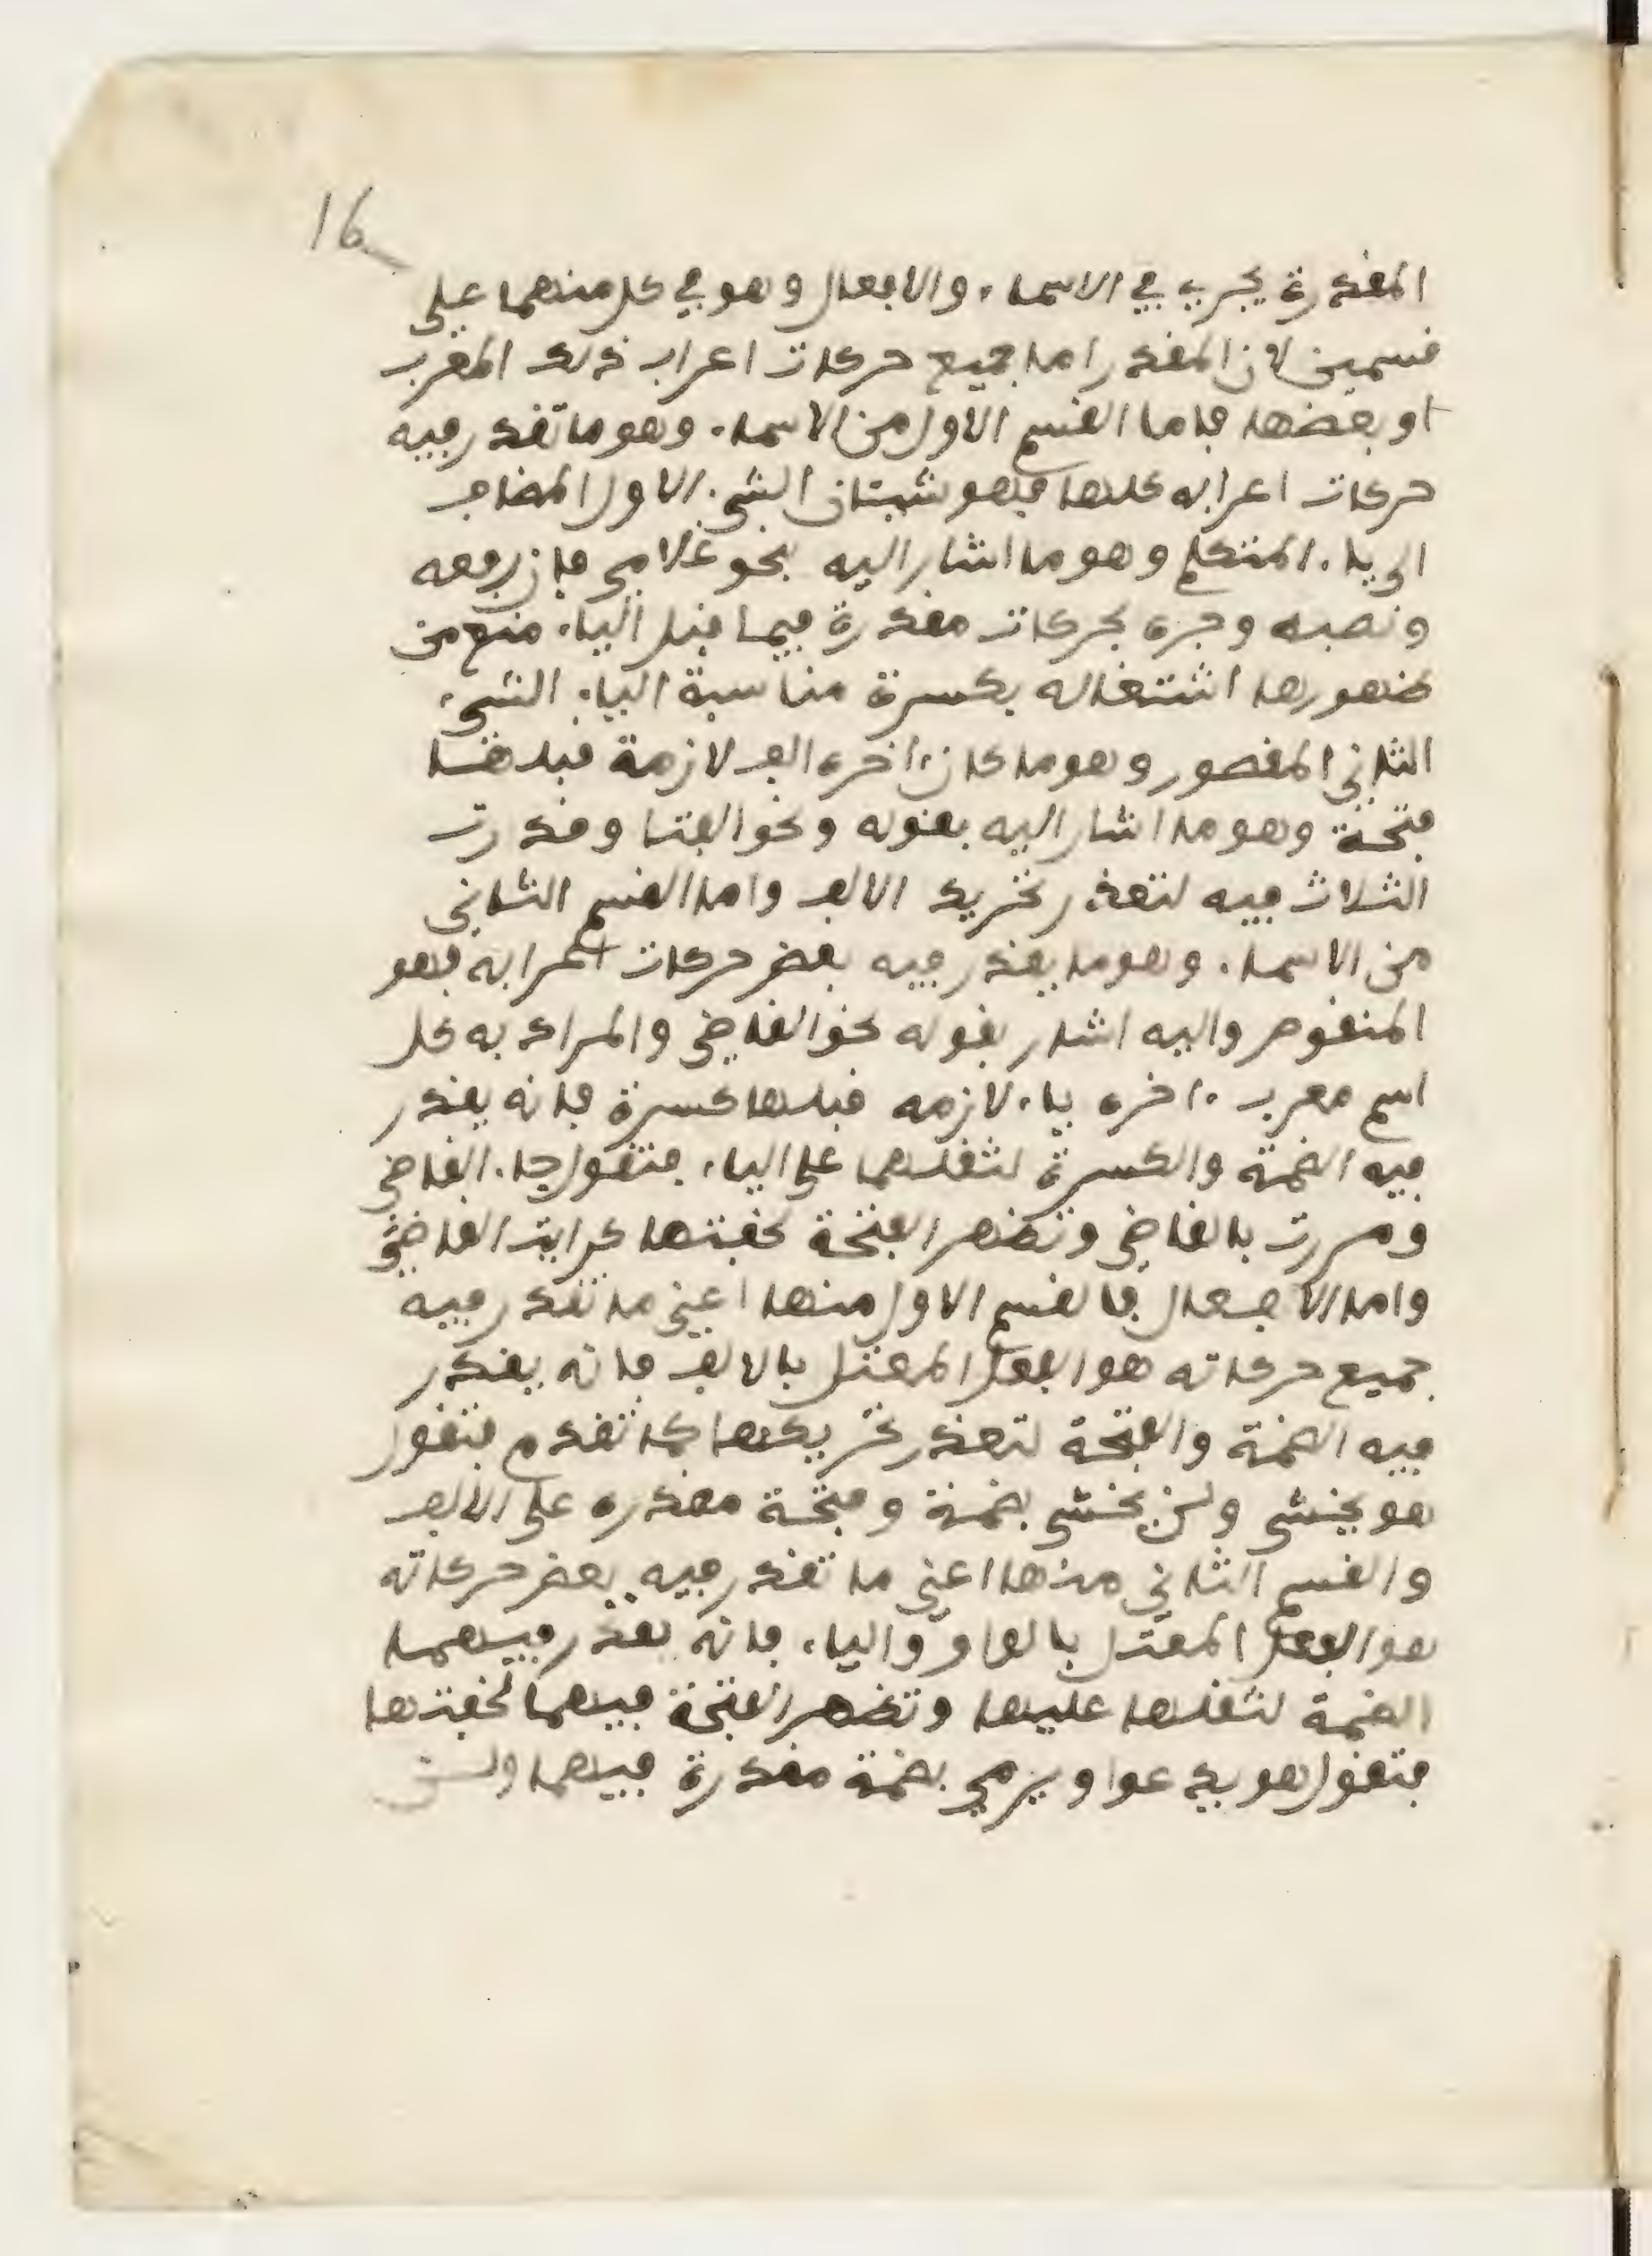 16
المقدرة يجري في الاسماء والافعال وهو في كل منهما على
قسمين لان المقدر اما جميع حركات اعراب ذلك المعرب
او بعضها فاما القسم الاول من الاسماء وهو ما تقدر فيه
حركات اعرابه كلها فهو شيئان الشيء الاول المضاف
الى ياء المتكلم وهو ما اشار اليه بنحو غلامي فان رفعه
ونصبه وجره بحركات مقدرة فيما قبل الياء منع من
ضهورها اشتغاله بكسرة مناسبة الياء الشيء
الثاني المقصور وهو ما كان ءاخره الف لازمة قبلها
فتحة وهو ما اشار اليه بقوله ونحو الفتا وقدرت
الثلاث فيه لتعذر تحريك الالف واما القسم الثاني
من الاسماء وهو ما يقدر فيه بعض حركات اعرابه فهو
المنقوص واليه اشار بقوله نحو القاضي والمراد به كل
اسم معرب ءاخره ياء لازمه قبلها كسرة فانه يقدر
فيه الضمة والكسرة لثقلهما على الياء فتقول جاء القاضي
ومررت بالقاضي وتضهر الفتحة لخفتها كرايت القاضي
واما الافعال فالقسم الاول منها اعني ما تقدر فيه
جميع حركاته هو الفعل المعتل بالالف فانه يقدر
فيه الضمة والفتحة لتعذر تحريكها كما تقدم فتقول
هو يخشى ولن يخشى بضمة وفتحة مقدره على الالف
والقسم الثاني منها اعني ما تقدر فيه بعض حركاته
هو الفعل المعتل بالواو والياء فانه تقدر فيهما
الضمة لثقلها عليها وتضهر الفتحة فيهما لخفتها
فتقول هو يدعوا ويرمي بضمة مقدرة فيهما ولن